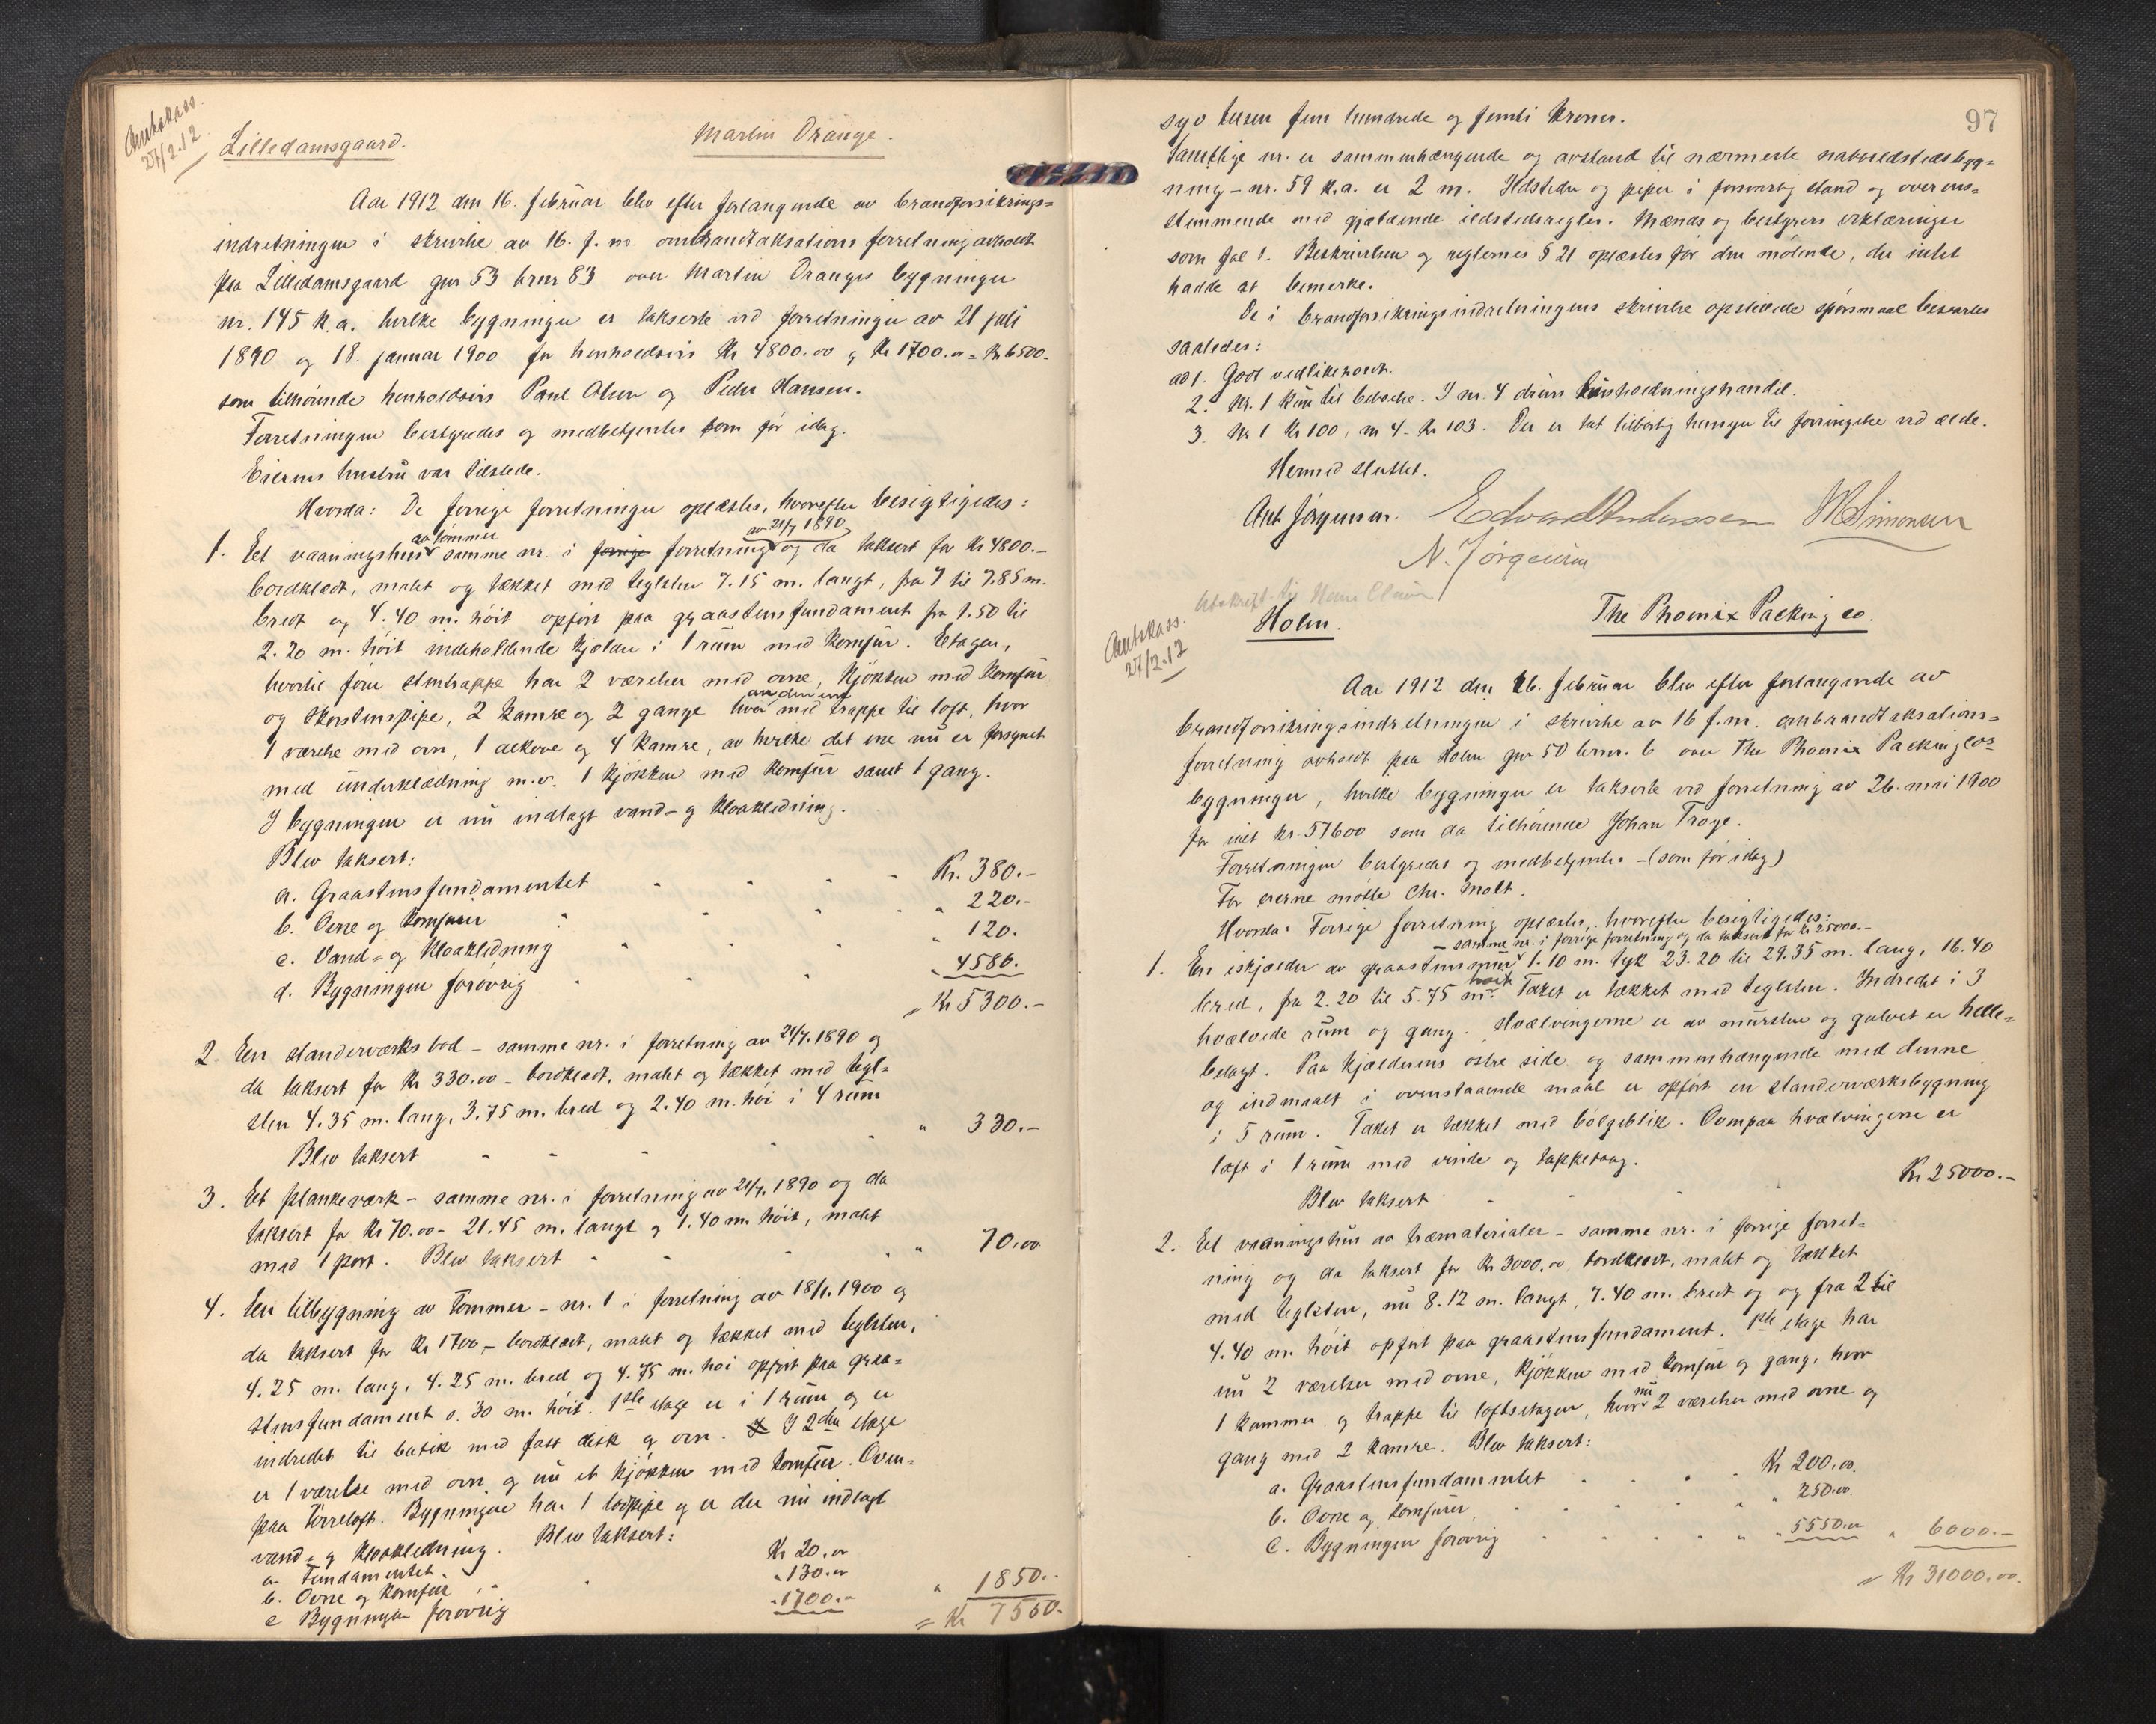 Amtskass.
27/2.12
Lilledamsgaard.
Martin Drange.
Aar 1912 den 16. februar blev efter forlangende av brandforsikrings-
indretningen i skrivelse av 16. f. m. ombrandtaksations forretning avholdt
paa Lilledamsgaard gnr 53 brnr 83 over Martin Dranges bygninger
nr. 145 k.a. hvilke bygninger er takserte ved forretninger av 21 juli
1890 og 18. januar 1900 for henholdsvis Kr 4800.00 og Kr 1700.00 = Kr 6500.
som tilhørende henholdsvis Paul Olsen og Peder Hansen.
Forretningen bestyredes og medbetjentes som før idag.
Eierens hustru var tilstede.
Hvorda: De forrige forretninger oplæstes, hvorefter besigtigedes:
av tømmer
av 21/7 1890
1. Et vaaningshus samme nr. i forrige forretning og da taksert for Kr 4800.-
bordklædt, malet og tækket med teglsten 7.15 m. langt, fra 7 til 7.85 m.
bredt og 4.40 m. høit opført paa graastensfundament fra 1.50 til
2.20 m. høit indeholdende kjælder i 1 rum med komfur. Etagen,
hvortil fører stentrappe har 2 værelser med ovne, kjøkken med komfur
og skorstenspipe, 2 kamre og 2 gange hvorav den ene med trappe til loft, hvor
1 værelse med ovn, 1 alkove og 4 kamre, av hvilke det ene nu er forsynet
med underklædning m.v. 1 kjøkken med komfur samt 1 gang.
I bygningen er nu indlagt vand- og kloakledning.
Blev taksert:
a. Graastensfundamentet Kr. 380.-
b. Ovne og komfurer " 220.-
c. Vand- og kloakledning " 120.
d. Bygningen forøvrig " 4580.
= Kr 5300.-
2. En standerværks bod - samme nr. i forretning av 21/7 1890 og
da taksert for Kr 330.00 - bordklædt, malet og tækket med tegl-
sten 4.35 m. lang, 3.75 m. bred og 2.40 m. høi i 4 rum
Blev taksert " 330.-
3. Et plankeværk - samme nr. i forretning av 21/7. 1890 og da
taksert for Kr 70.00 - 21.45 m. langt og 1.40 m. høit, malet
med 1 port. Blev taksert " 70.00
4. En tilbygning av Tømmer - nr. 1 i forretning av 18/1. 1900 og
da taksert for Kr 1700 - bordklædt, malet og tækket med teglsten,
4.25 m. lang, 4.25 m. bred og 4.75 m. høi opført paa graa-
stensfundament 0.30 m. høit. 1ste etage er i 1 rum og er
indredet til butik med fast disk og ovn. I 2den etage
er 1 værelse med ovn og nu et kjøkken med komfur. Oven-
paa tørreloft. Bygningen har 1 lodpipe og er der nu indlagt
vand- og kloakledning. Blev taksert:
a. Fundamentet Kr 20.00
b. Ovne og komfur " 130.00
c Bygningen forøvrig " 1700.- " 1850.-
= Kr 7550.
97
syv tusen fem hundrede og femti kroner.
Samtlige nr. er sammenhængende og avstand til nærmeste naboildstedsbyg-
ning - nr. 59 k.a. er 2 m. Ildsteder og piper i forsvarlig stand og overens-
stemmende med gjældende ildstedsregler. Mænds og bestyrers erklæringer
som fol 1. Beskrivelsen og reglernes § 21 oplæstes for den møtende, der intet
hadde at bemerke.
De i brandforsikringsindretningens skrivelse opstillede spørsmaal besvartes
saaledes:
ad 1. Godt vedlikeholdt.
2. Nr. 1 kun til beboelse. I nr. 4 drives husholdningshandel.
3. Nr 1 Kr 100, nr 4 - Kr 103. Der er tat tilbørlig hensyn til forringelse ved ælde.
Hermed sluttet.
Ant Jørgensen. Edvard Anderssen M Simonsen
N. Jørgensen
Avskrift til
Amtskass.
27/2.12
Holm.
The Phoenix Packing co.
Aar 1912 den 26. februar blev efter forlangende av
brandforsikringsindretningen i skrivelse av 16 f.m. ombrandtaksations-
forretning avholdt paa Holm gnr 50 brnr. 6 over The Phoenix Packing cos
bygninger, hvilke bygninger er takserte ved forretning av 26. mai 1900
for ialt kr. 57600 som da tilhørende Johan Troye.
Forretningen bestyredes og medbetjentes - (som før idag)
For eierne møtte Chr. Molt.
Hvorda: Forrige forretning oplæstes, hvorefter besigtigedes:
- samme nr. i forrige forretning og da taksert for Kr 25000.-
1. En iskjælder av graastensmur 1.10 m. tyk 23.20 til 29.35 m. lang, 16.40
bred, fra 2.20 til 5.75 m. høit. Taket er tækket med teglsten. Indredet i 3
hvælvede rum og gang. Hvælvingerne er av mursten og gulvet er helle-
belagt. Paa kjælderens østre side og sammenhængende med denne
og indmaalt i ovenstaaende maal er opført en standerværksbygning
i 5 rum. Taket er tækket med bølgeblik. Ovenpaa hvælvingerne er
loft i 1 rum med vinde og takketaug.
Blev taksert Kr 25000.-
2. Et vaaningshus av træmaterialer - samme nr. i forrige forret-
ning og da taksert for Kr 3000.00, bordklædt, malet og tækket
med teglsten, nu 8.12 m. langt, 7.40 m. bredt og og fra 2 til
4.40 m. høit opført paa graastensfundament. 1ste etage har
nu 2 værelser med ovne, kjøkken med komfur og gang, hvor
1 kammer og trappe til loftsetagen, hvor nu 2 værelser med ovne og
gang med 2 kamre. Blev taksert:
a. Graastensfundamentet Kr 200.00.
b. Ovne og komfurer " 250.00.
c. Bygningen forøvrig " 5550.00 " 6000.-
= Kr 31000.00.